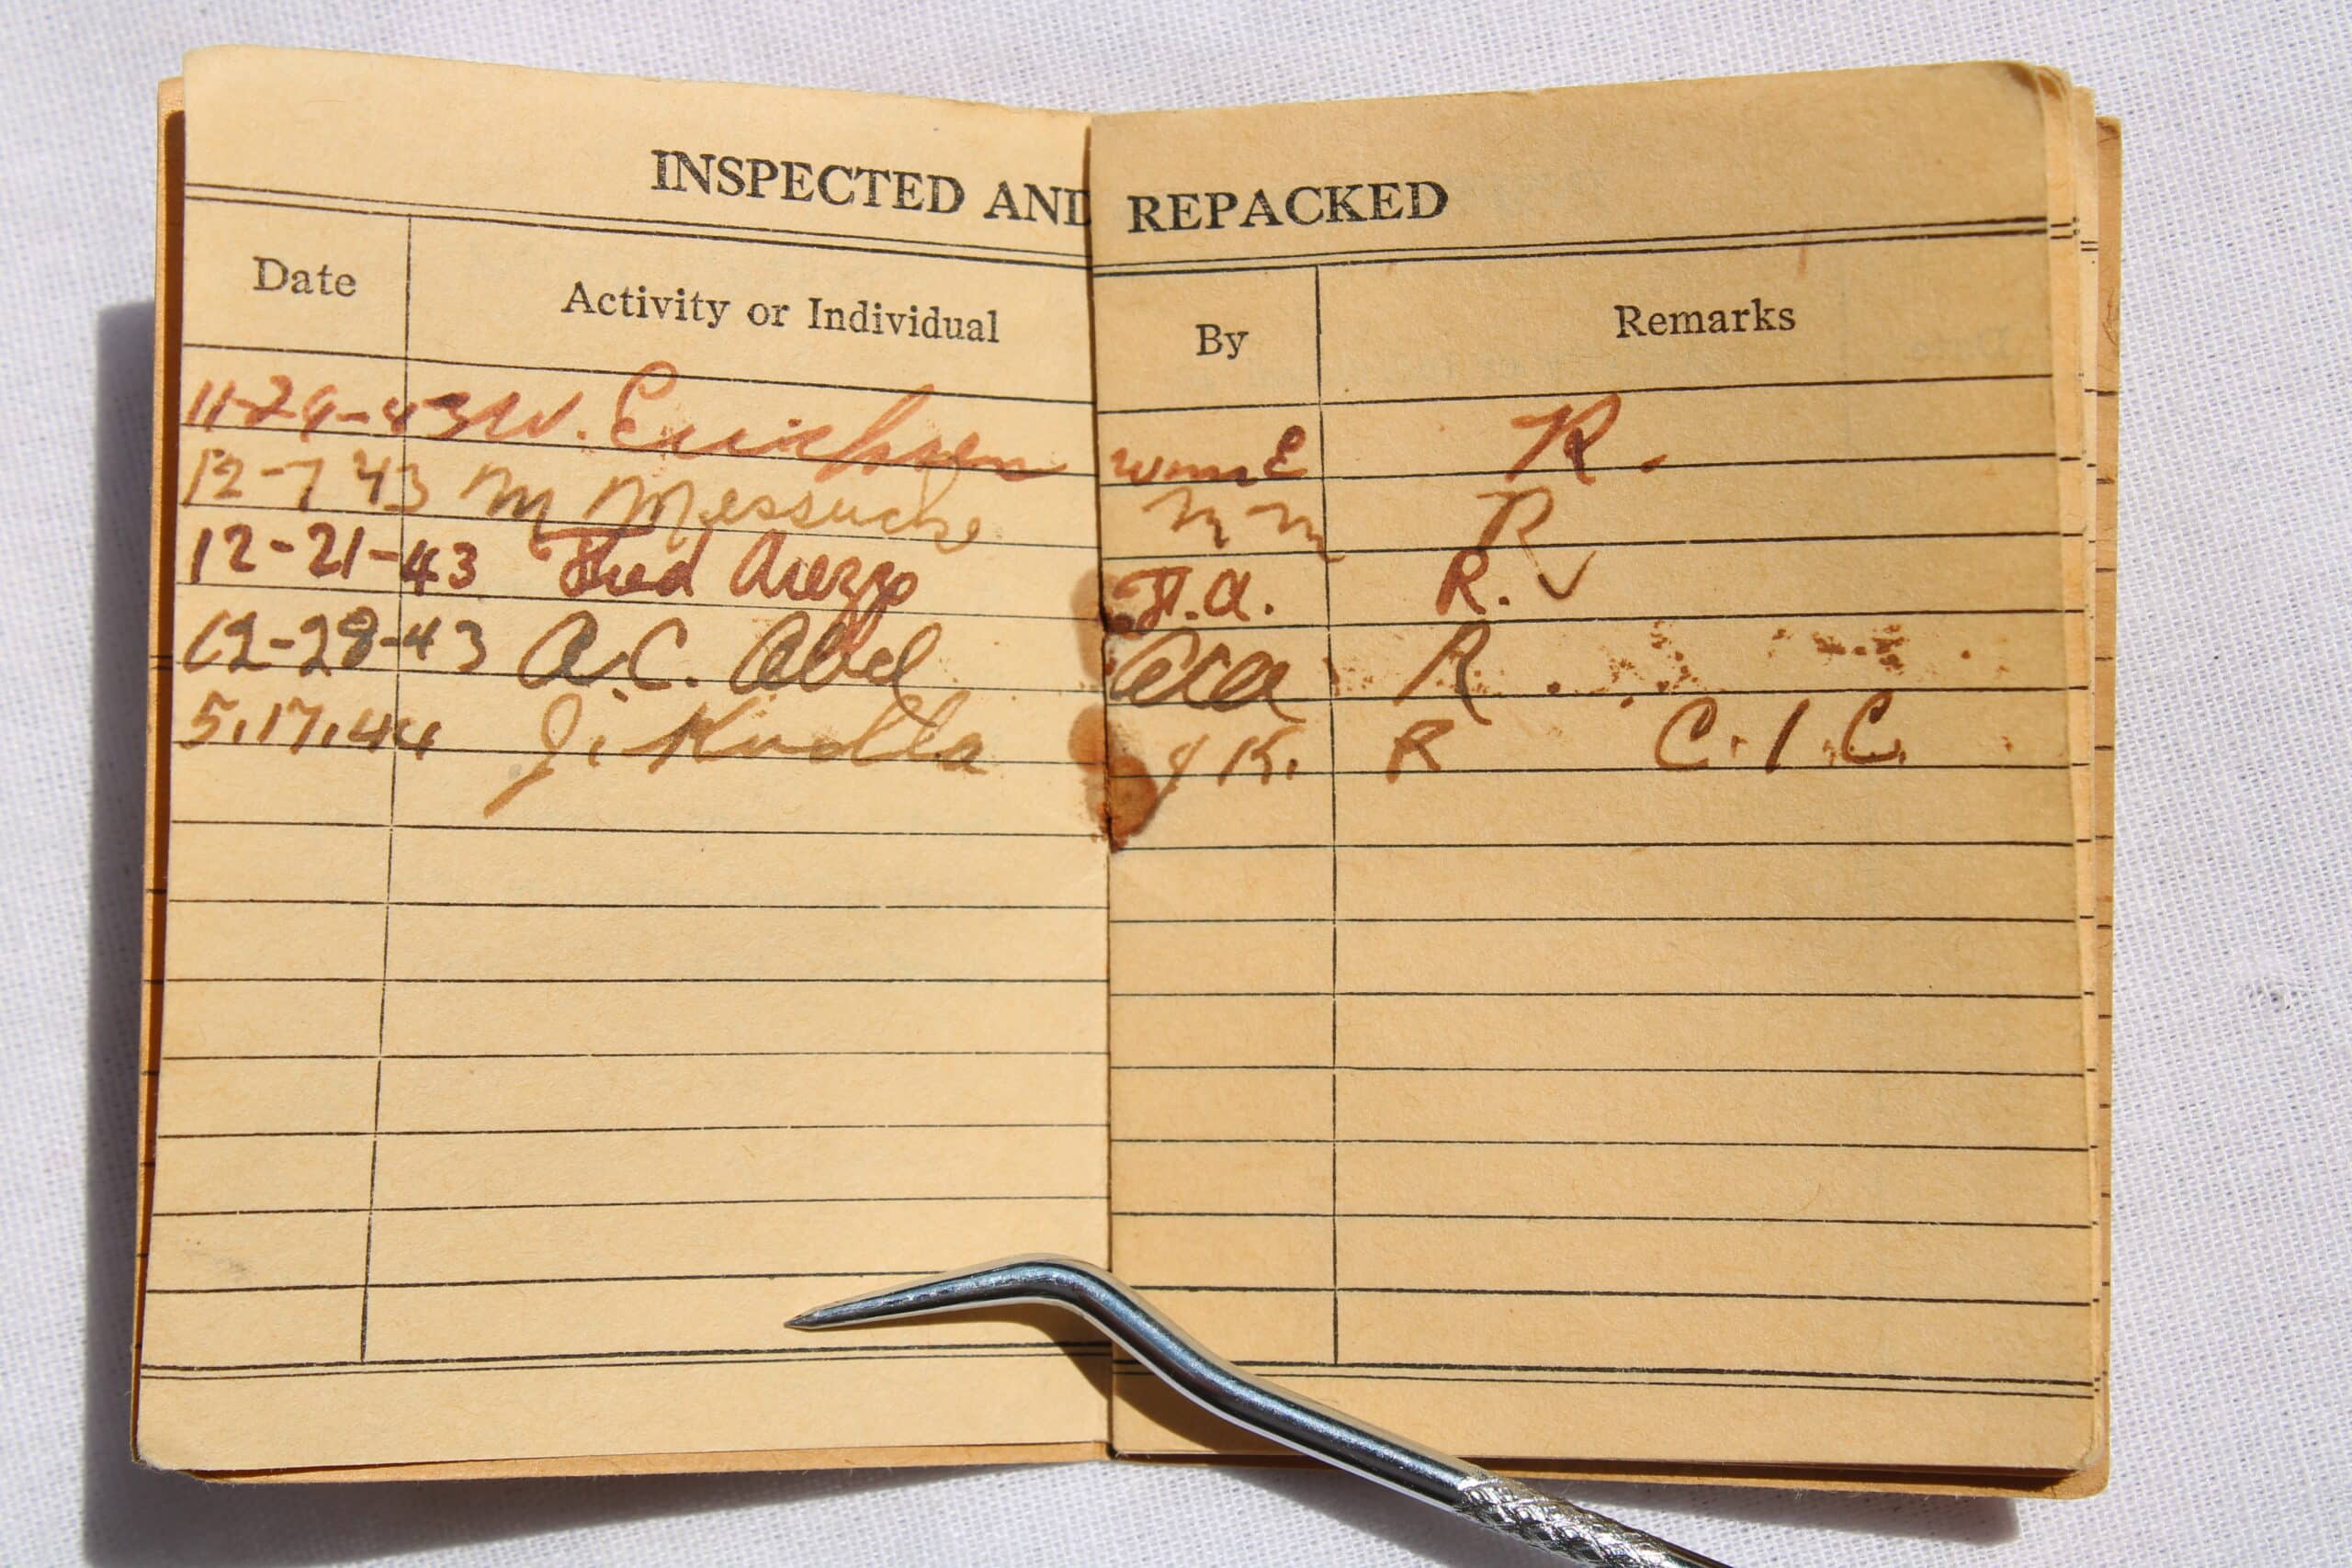 INSPECTED AND REPACKED
Date Activity or Individual By Remarks
11-29-43 W. Erichsen E R.
12-7 43 M M M R
12-21-43 Fred Arezzo F.A. R. ✓
12-28-43 A.C. Abel ACA R
5.17.44 J. Knolla J K. R C.I.C.